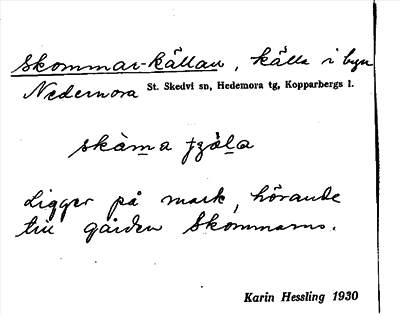 Skommar-källan, källa i byn
Nedernora St. Skedvi sn, Hedemora tg, Kopparbergs l.
skàm̲a ɟʒàl̲a
Ligger på mark, hörande
till gården Skommars.
Karin Hessling 1930